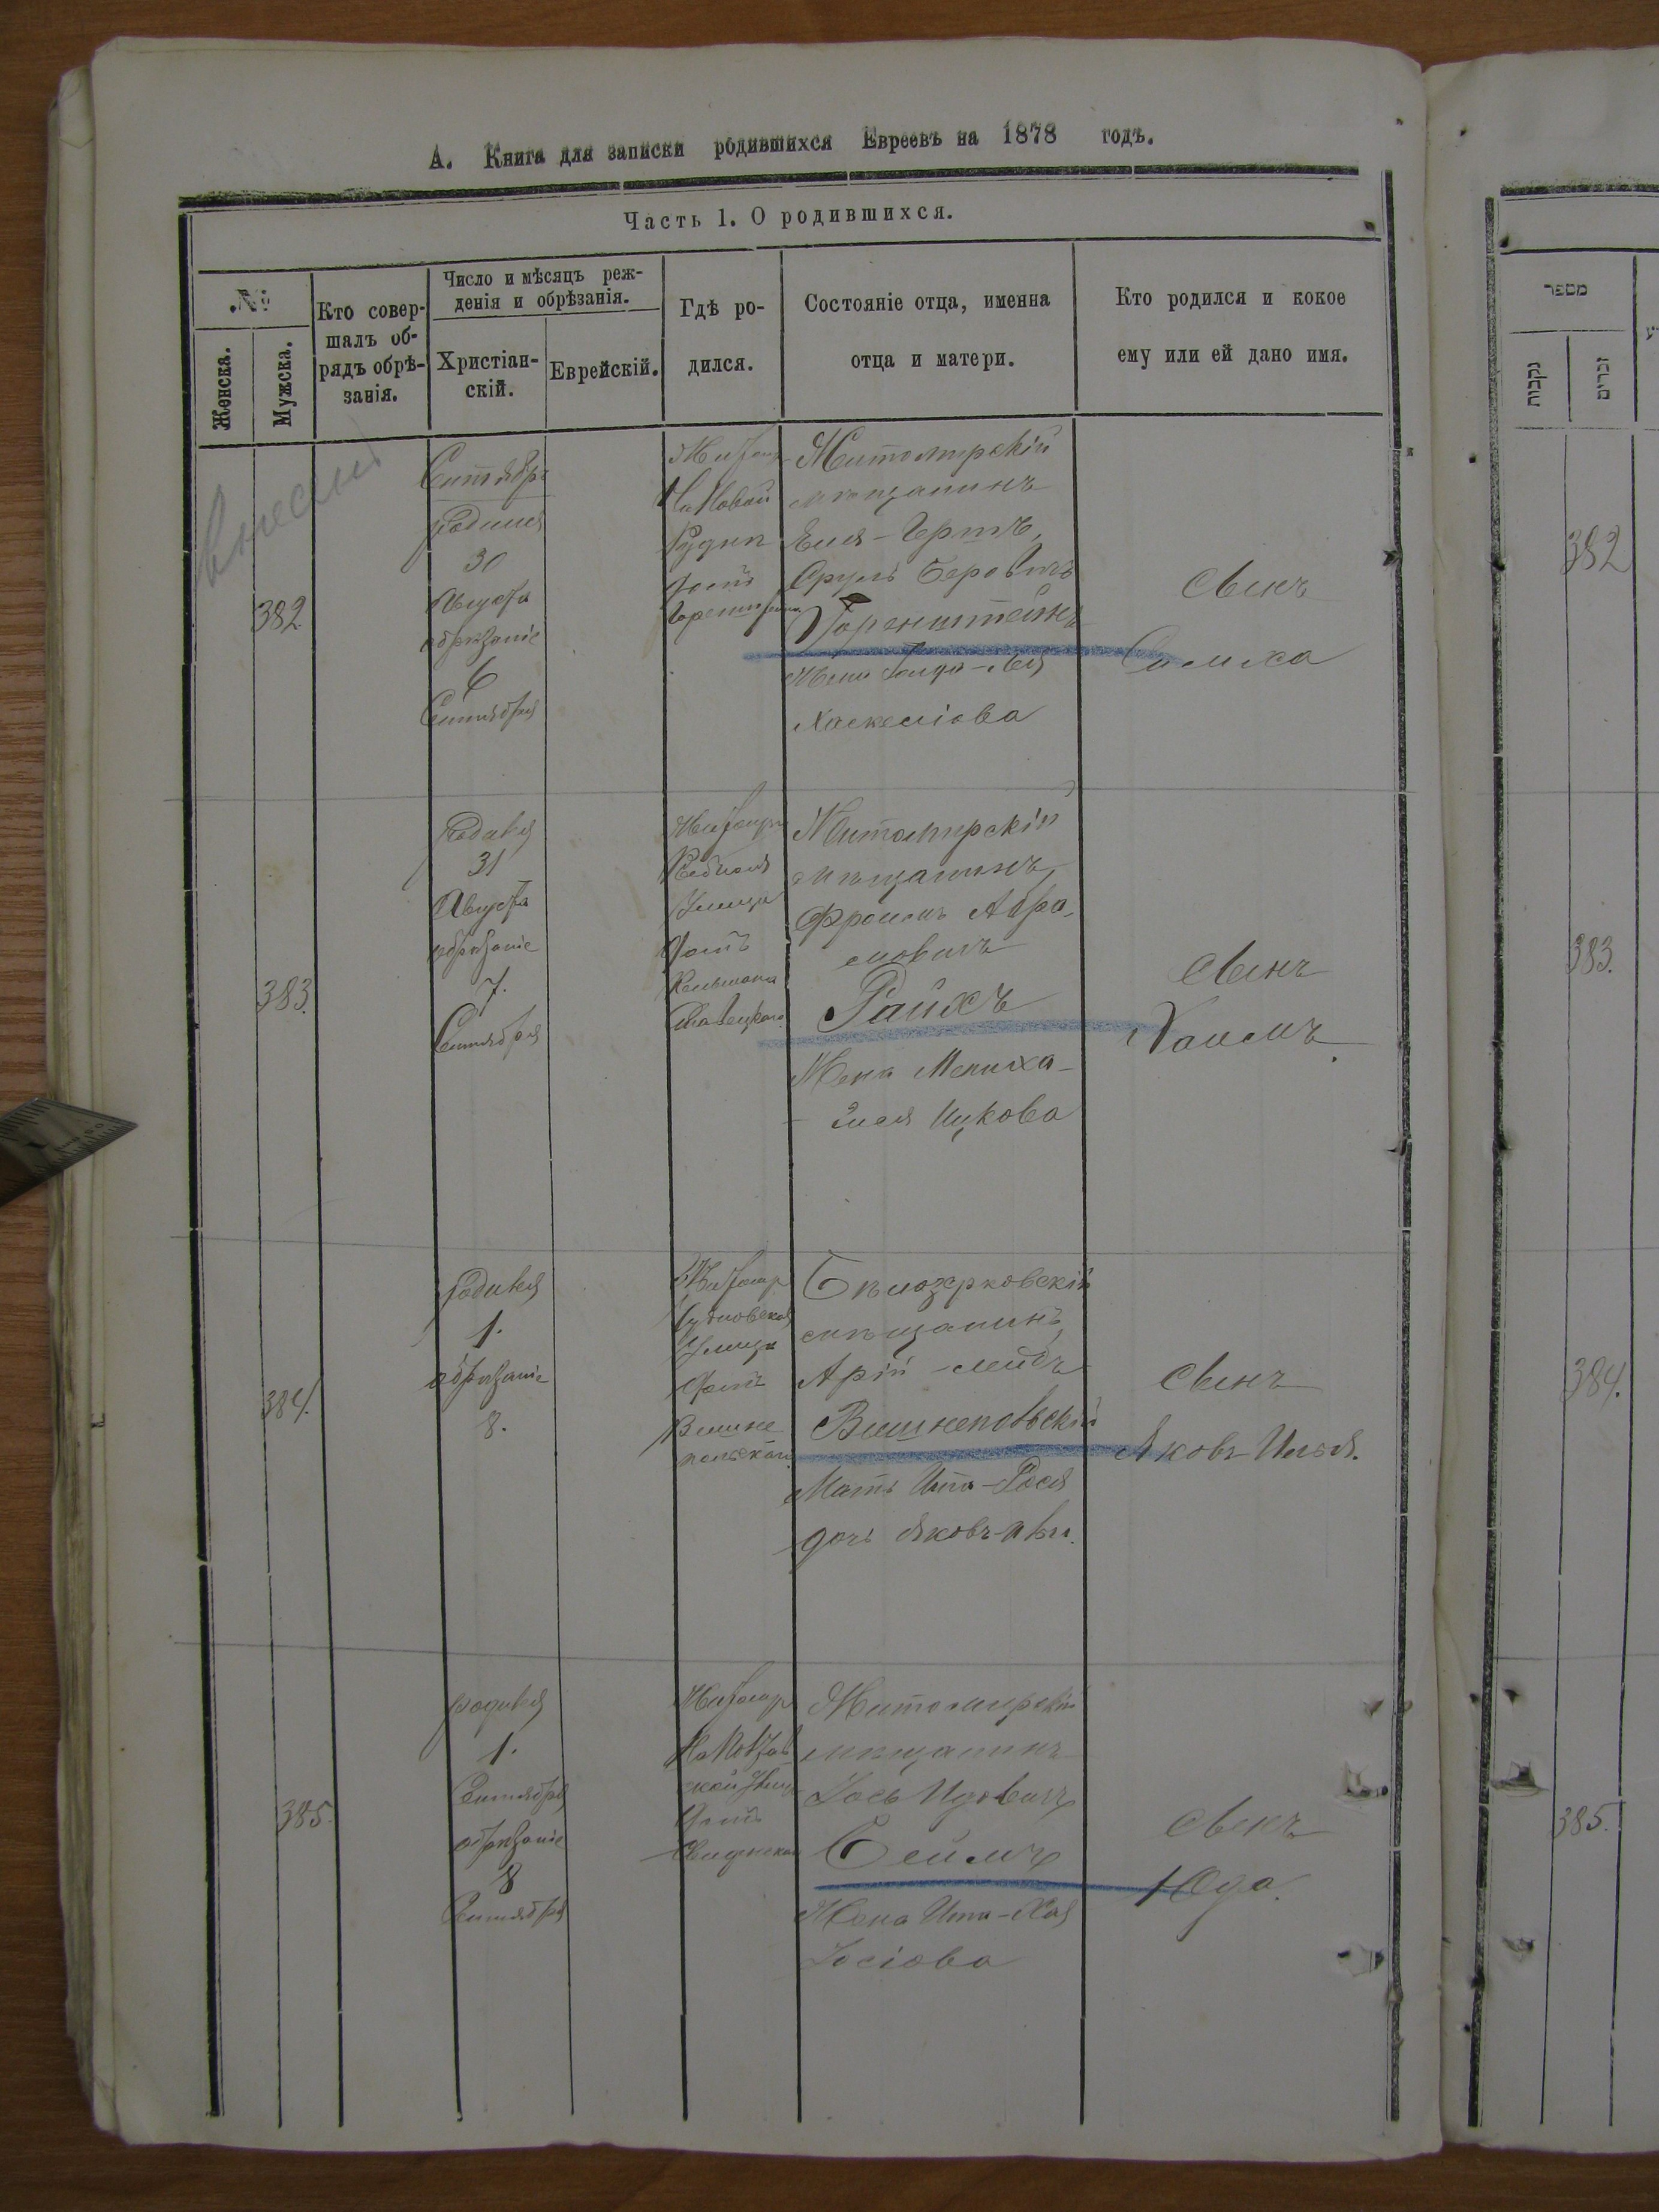 А. Книга для записки родившихся Евреевъ на 1878 годъ.
Часть 1. О родившихся.
№
Женска.
Мужска.
Кто совер-
шалъ об-
рядъ обрѣ-
занія.
Число и мѣсяцъ реж-
денія и обрѣзанія.
Христіан-
скій.
Еврейскій.
Гдѣ ро-
дился.
Состояніе отца, именна
отца и матери.
Кто родился и кокое
ему или ей дано имя.
382
Сентябрь
родился
30
Августа
обрѣзаніе
6
Сентября
Житомир
На Новой
Рудни
домъ
Житомирскій
мѣщанинъ
Сруль Беровичъ
Горенштейнъ
Хаскеліова
Сынъ
Симха
383.
Родился
31
Августа
обрѣзаніе
7.
Сентября
Житомир
улица
домъ
Житомирскій
мѣщанинъ,
Фроимъ Авра-
мовичъ
Райхъ
Жена Мениха-
Ицкова
Сынъ
Хаимъ.
384.
родился
1.
обрѣзаніе
8.
Житомир
Чудновская
улица
домъ
Вишне
польской
Бѣлоцерковскій
мѣщанинъ,
Арій-Лейбъ
Вишнепольскій
Мать Ита-Рося
дочь Яковъ
Сынъ
Яковъ-Илья.
385.
родился
1.
Сентября
обрѣзаніе
8
Сентября
Житомир
домъ
Житомирскій
мѣщанинъ
Іось Идовичъ
Сеймъ
Жена Ита-Хая
Іосіова
Сынъ
Юда.
מספר
נקבות
זכרים
382
383.
384.
385.